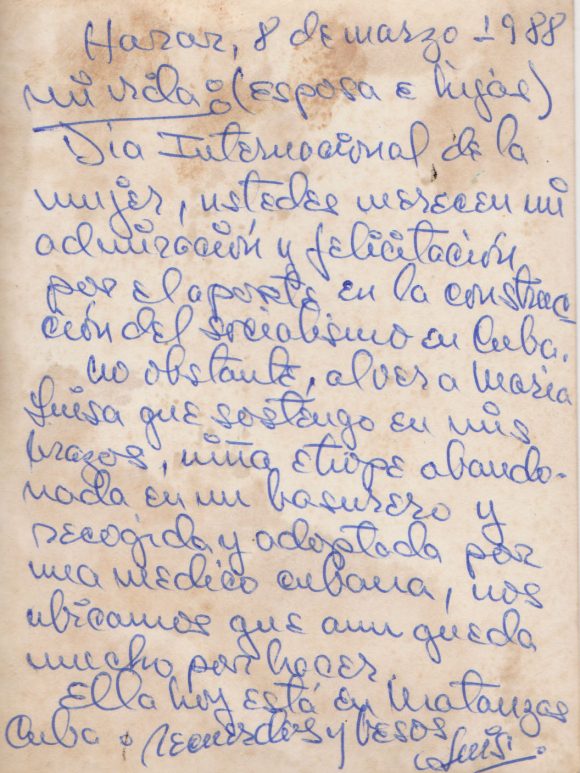 Harar, 8 de marzo 1988
mi vida: (esposa e hijas)
Dia Internacional de la
mujer, ustedes merecen mi
admiración y felicitación
por el aporte en la construc
ción del socialismo en Cuba.
no obstante, al ver a María
Luisa que sostengo en mis
brazos, niña etiope abando-
nada en un basurero y
recogida y adoptada por
una medico cubana, nos
ubicamos que aun queda
mucho por hacer.
Ella hoy está en Matanzas
Cuba. recuerdos y besos
Luis.